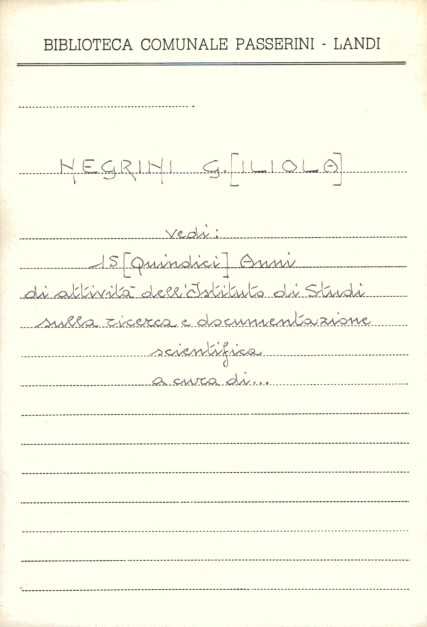 BIBLIOTECA COMUNALE PASSERINI - LANDI
NEGRINI G.[ILIOLA]
vedi:
15[Quindici] Anni
di attività dell'Istituto di Studi
sulla ricerca e documentazione
scientifica
a cura di...